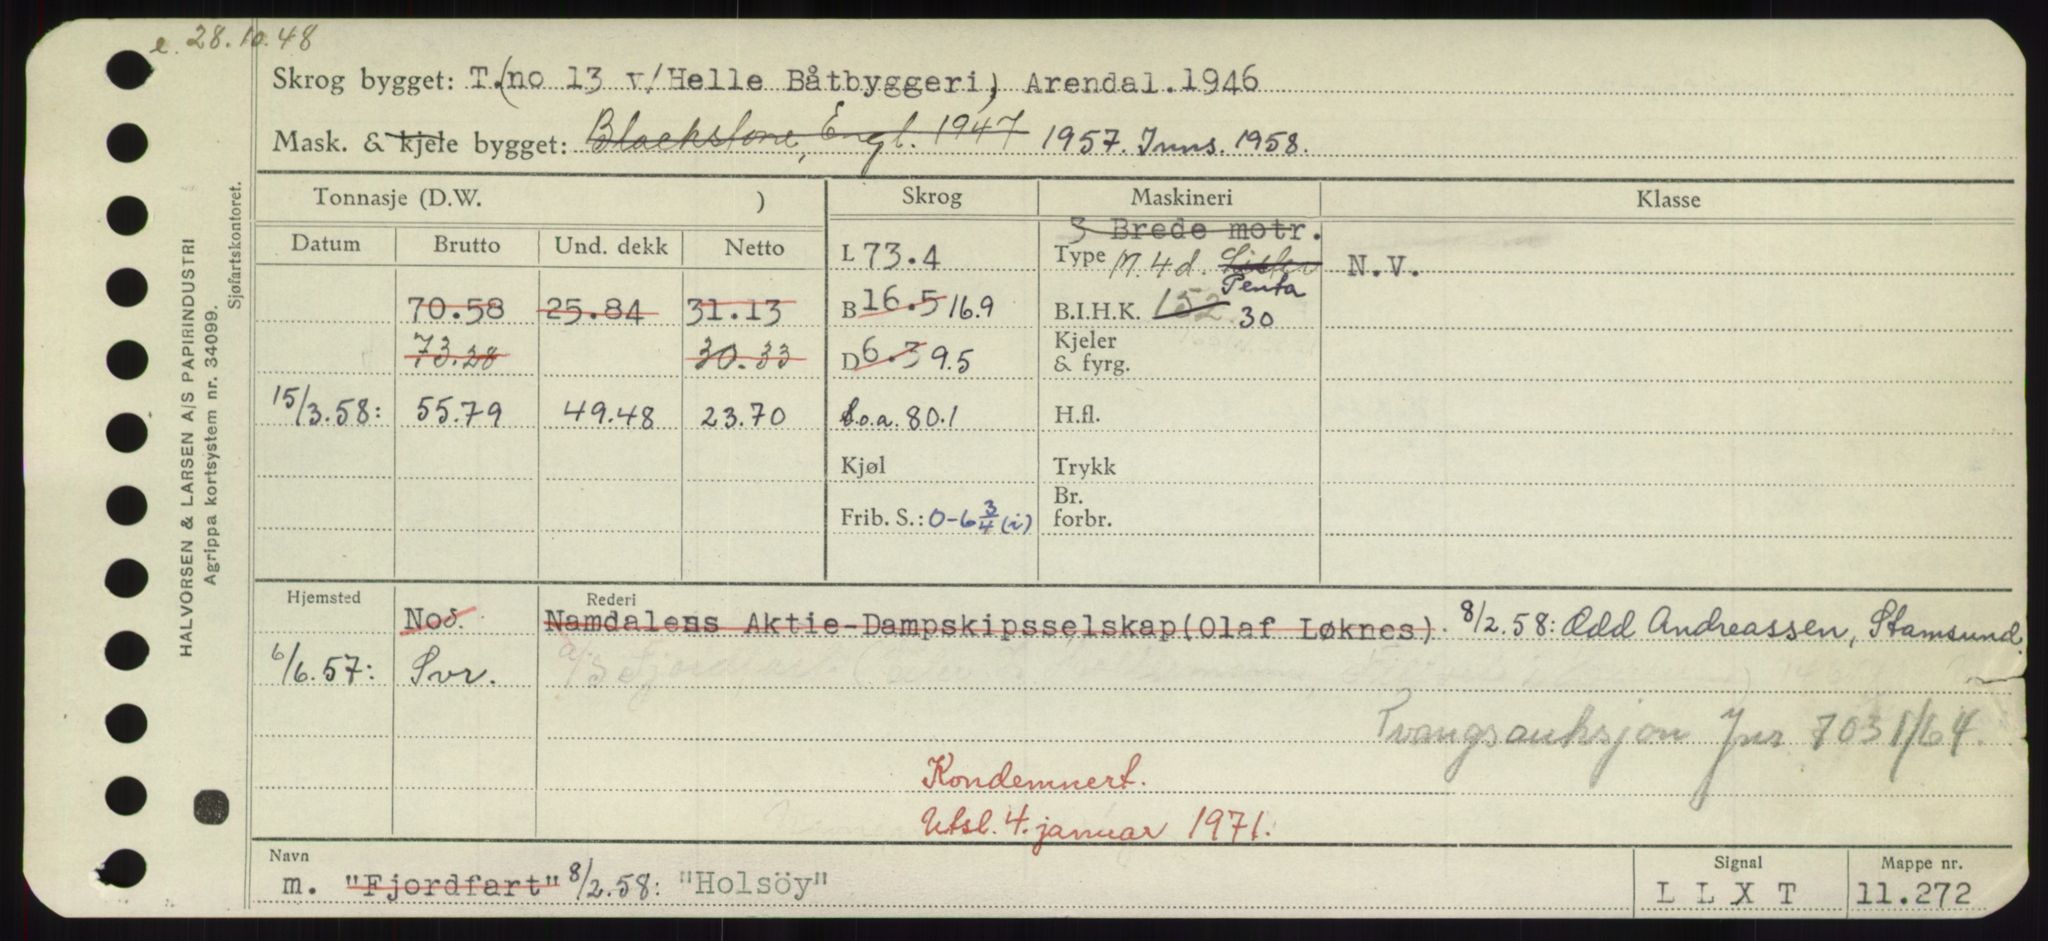 e. 28.10.48
Skrog bygget: T.(no 13 v/Helle Båtbyggeri), Arendal.1946
Mask. & kjele bygget: Blackstone, Engl. 1947 1957. Inns. 1958.
Tonnasje (D.W. ) Skrog Maskineri Klasse
Datum Brutto Und. dekk Netto
3 Brede motr.
L 73.4 Type M. 4d. Lister N.V.
Penta
70.58 25.84 31.13 B 16.5 16.9 B.I.H.K. 152 30
73.28 30.33 D 6.3 9.5 Kjeler & fyrg.
15/3.58: 55.79 49.48 23.70 L.o.a. 80.1 H.fl.
Kjøl Trykk
Frib. S.: 0-6 3/4 (i) Br. forbr.
Hjemsted Rederi
Nos. Namdalens Aktie-Dampskipsselskap(Olaf Løknes). 8/2.58: Odd Andreassen, Stamsund.
6/6.57: Svr. a/s Fjordfart
Tvangsauksjon Jnr 7031/64.
Kondemnert.
Utsl. 4. januar 1971.
Navn Signal Mappe nr.
m. "Fjordfart" 8/2.58: "Holsöy" L L X T 11.272
HALVORSEN & LARSEN A/S PAPIRINDUSTRI
Agrippa kortsystem nr. 34099.
Sjøfartskontoret.